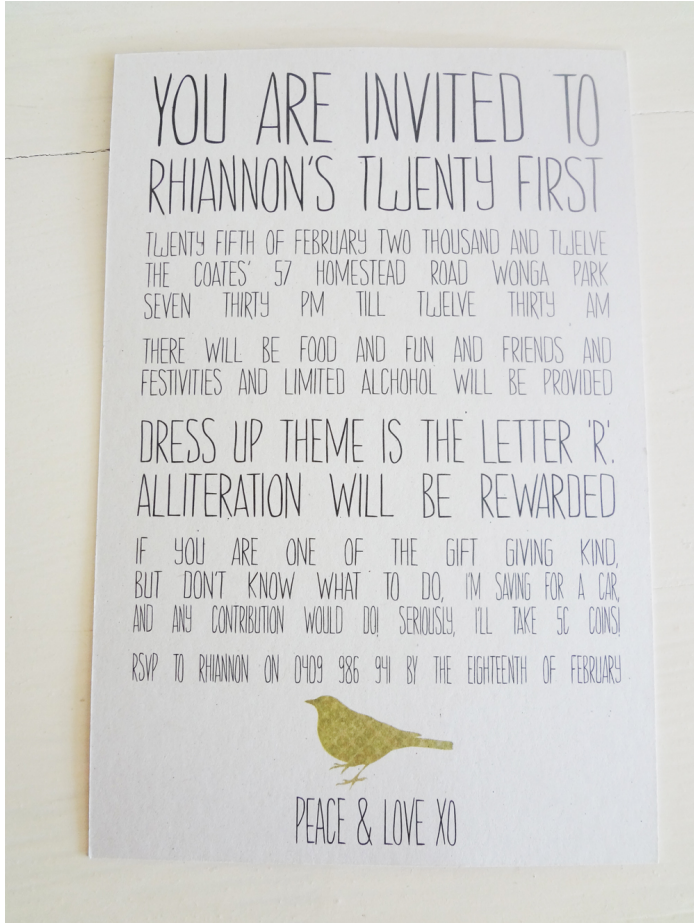 YOU ARE INVITED TO
RHIANNON'S TWENTY FIRST
TWENTY FIFTH OF FEBRUARY TWO THOUSAND AND TWELVE
THE COATES' 57 HOMESTEAD ROAD WONGA PARK
SEVEN THIRTY PM TILL TWELVE THIRTY AM
THERE WILL BE FOOD AND FUN AND FRIENDS AND
FESTIVITIES AND LIMITED ALCHOHOL WILL BE PROVIDED
DRESS UP THEME IS THE LETTER 'R'.
ALLITERATION WILL BE REWARDED
IF YOU ARE ONE OF THE GIFT GIVING KIND,
BUT DON'T KNOW WHAT TO DO, I'M SAVING FOR A CAR,
AND ANY CONTRIBUTION WOULD DO! SERIOUSLY, I'LL TAKE 5C COINS!
RSVP TO RHIANNON ON 0409 986 941 BY THE EIGHTEENTH OF FEBRUARY
PEACE & LOVE XO